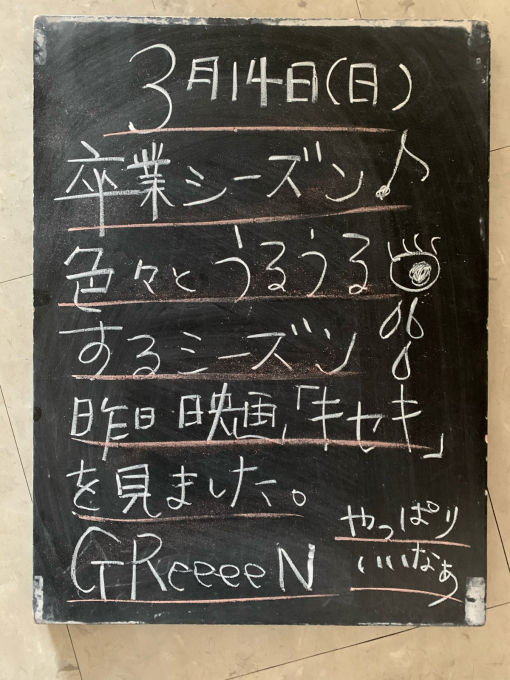 3月14日(日)
卒業シーズン♪
色々とうるうる
するシーズン
昨日映画「キセキ」
を見ました。
GReeeeN
やっぱり
いいなぁ